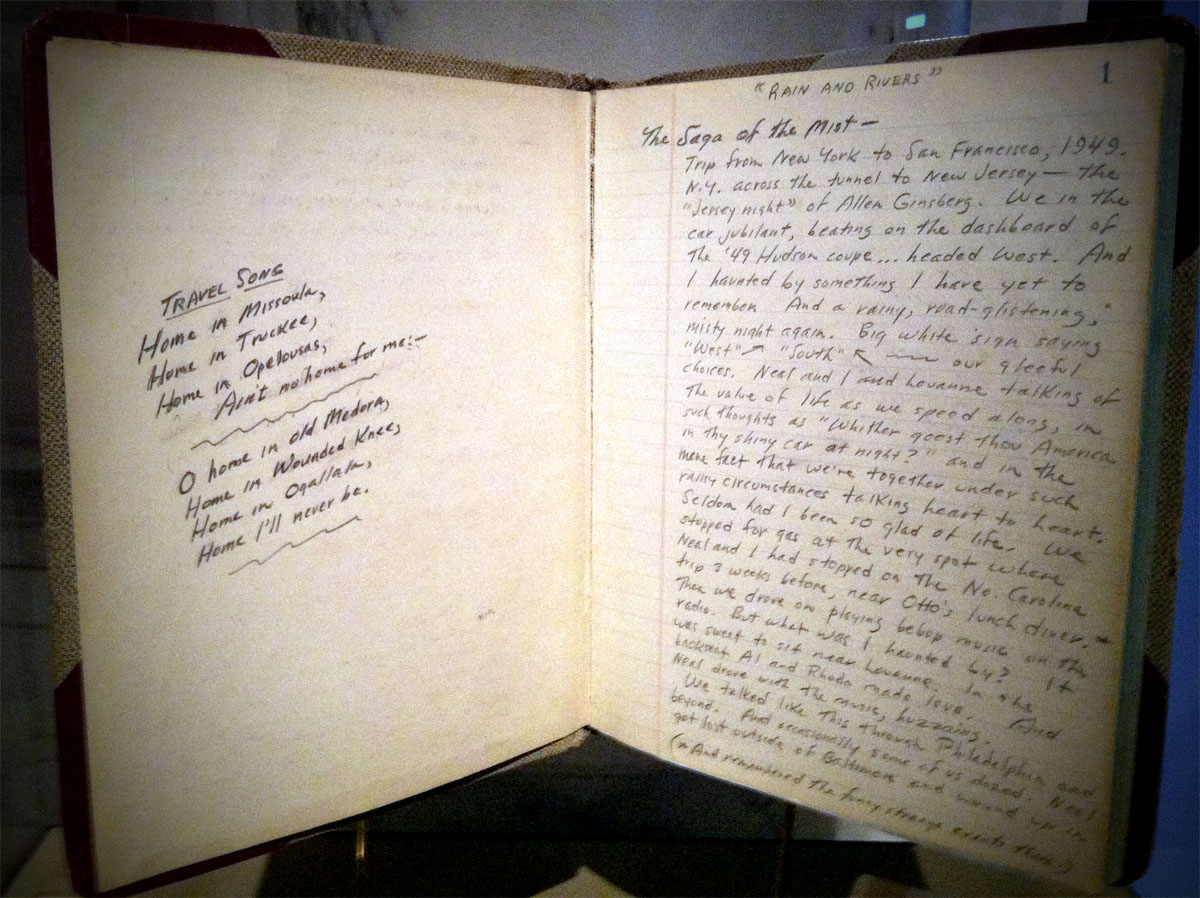 TRAVEL SONG
Home in Missoula,
Home in Truckee,
Home in Opelousas,
Ain't no home for me:—
O home in old Medora,
Home in Wounded Knee,
Home in Ogallala,
Home I'll never be.
1
"RAIN AND RIVERS"
The Saga of the Mist—
Trip from New York to San Francisco, 1949.
N.Y. across the tunnel to New Jersey — the
"Jersey night" of Allen Ginsberg. We in the
car jubilant, beating on the dashboard of
the '49 Hudson coupe... headed West. And
I haunted by something I have yet to
remember. And a rainy, road-glistening,
misty night again. Big white sign saying
"West" → "South" ← our gleeful
choices. Neal and I and Louanne talking of
the value of life as we speed along, in
such thoughts as "Whither goest thou America
in thy shiny car at night?" and in the
mere fact that we're together under such
rainy circumstances talking heart to heart.
Seldom had I been so glad of life. We
stopped for gas at the very spot where
Neal and I had stopped on the No. Carolina
trip 3 weeks before, near Otto's lunch diner. *
Then we drove on playing bebop music on the
radio. But what was I haunted by? It
was sweet to sit near Louanne. In the
backseat Al and Rhoda made love. And
Neal drove with the music, huzzaing.
We talked like this through Philadelphia and
beyond. And occasionally some of us dozed. Neal
got lost outside of Baltimore and wound up in
(* And remembered the funny strange events there.)